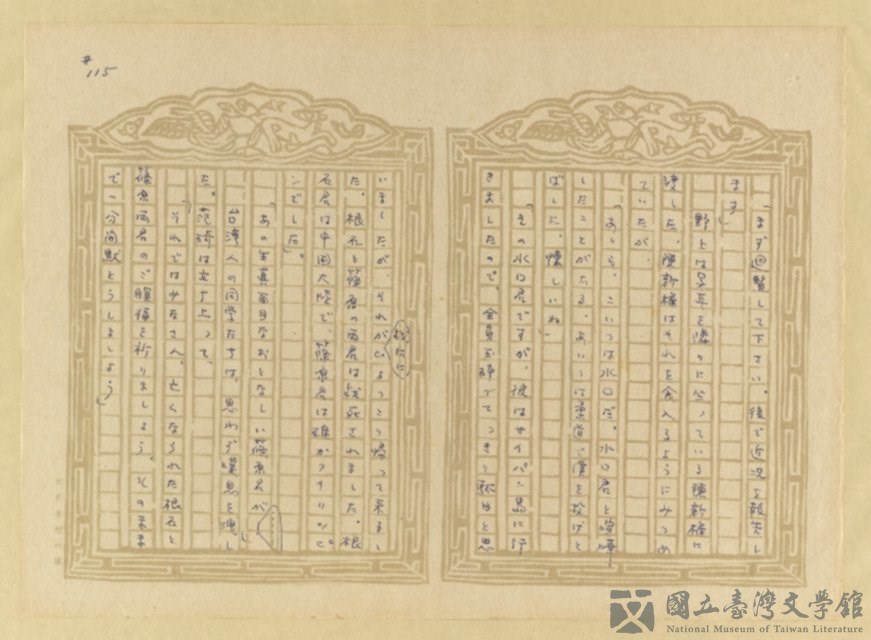 #115
「まず廻覧して下さい。後で近況を報告し
ます」
野上は写真を隣りに坐っている陳新橋に
渡した。陳新橋はそれを食入るようにみつめ
ていたが、
「あゝそ、こいつは水口だ。水口君と喧嘩
したことがある。あいつは柔道で僕を投げと
ばした。懐しいね」
「その水口君ですが、彼はサイパン島に行
きましたので、全員玉砕でてっきり駄目と思
いましたが、それがひょっこり帰って来まし
た。根石と篠原の両君は戦死されました。根
石君は中国大陸で、篠原君は確かフイリッピ
ンでした」
「あの生真面目なおとなしい篠原君が
台湾人の同学たちは、思わず嘆息を洩し
た。范琦は立ち上って、
「それではみなさん、亡くなられた根石と
篠原両君のご冥福を祈りましょう。そのまま
で一分間黙とうしましょう」
國立臺灣文學館
National Museum of Taiwan Literature